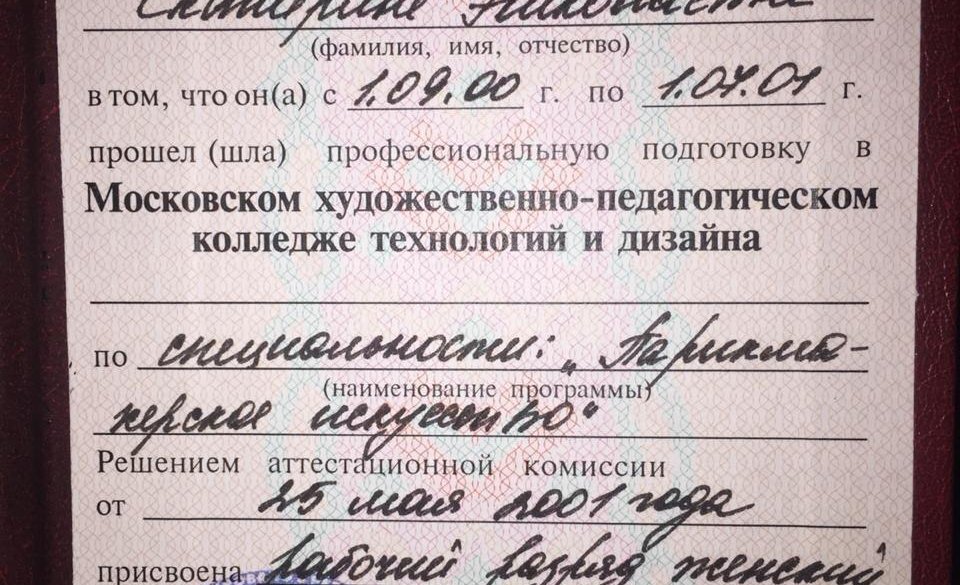 Екатерине Николаевне
(фамилия, имя, отчество)
в том, что он(а) с 1.09.00 г. по 1.07.01 г.
прошел (шла) профессиональную подготовку в
Московском художественно-педагогическом
колледже технологий и дизайна
по специальности: „Парикма-
(наименование программы)
херское искусство“
Решением аттестационной комиссии
от 25 мая 2001 года
присвоена рабочий разряд женский